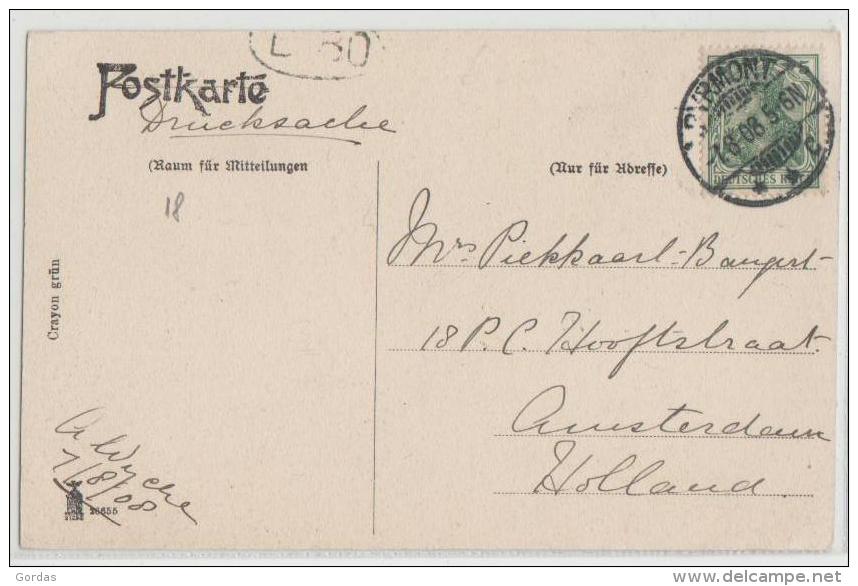 L 80
Postkarte
Drucksache
(Raum für Mitteilungen
(Nur für Adresse)
18
PYRMONT
7.8.08.5-6N.
* * C
DEUTSCHES REICH
Mrs Piekkaarl-Bangert-
18 P.C. Hooftstraat.
Amsterdam
Holland.
Crayon grün
7/8/08
26655
Gordas
http://www.delcampe.net